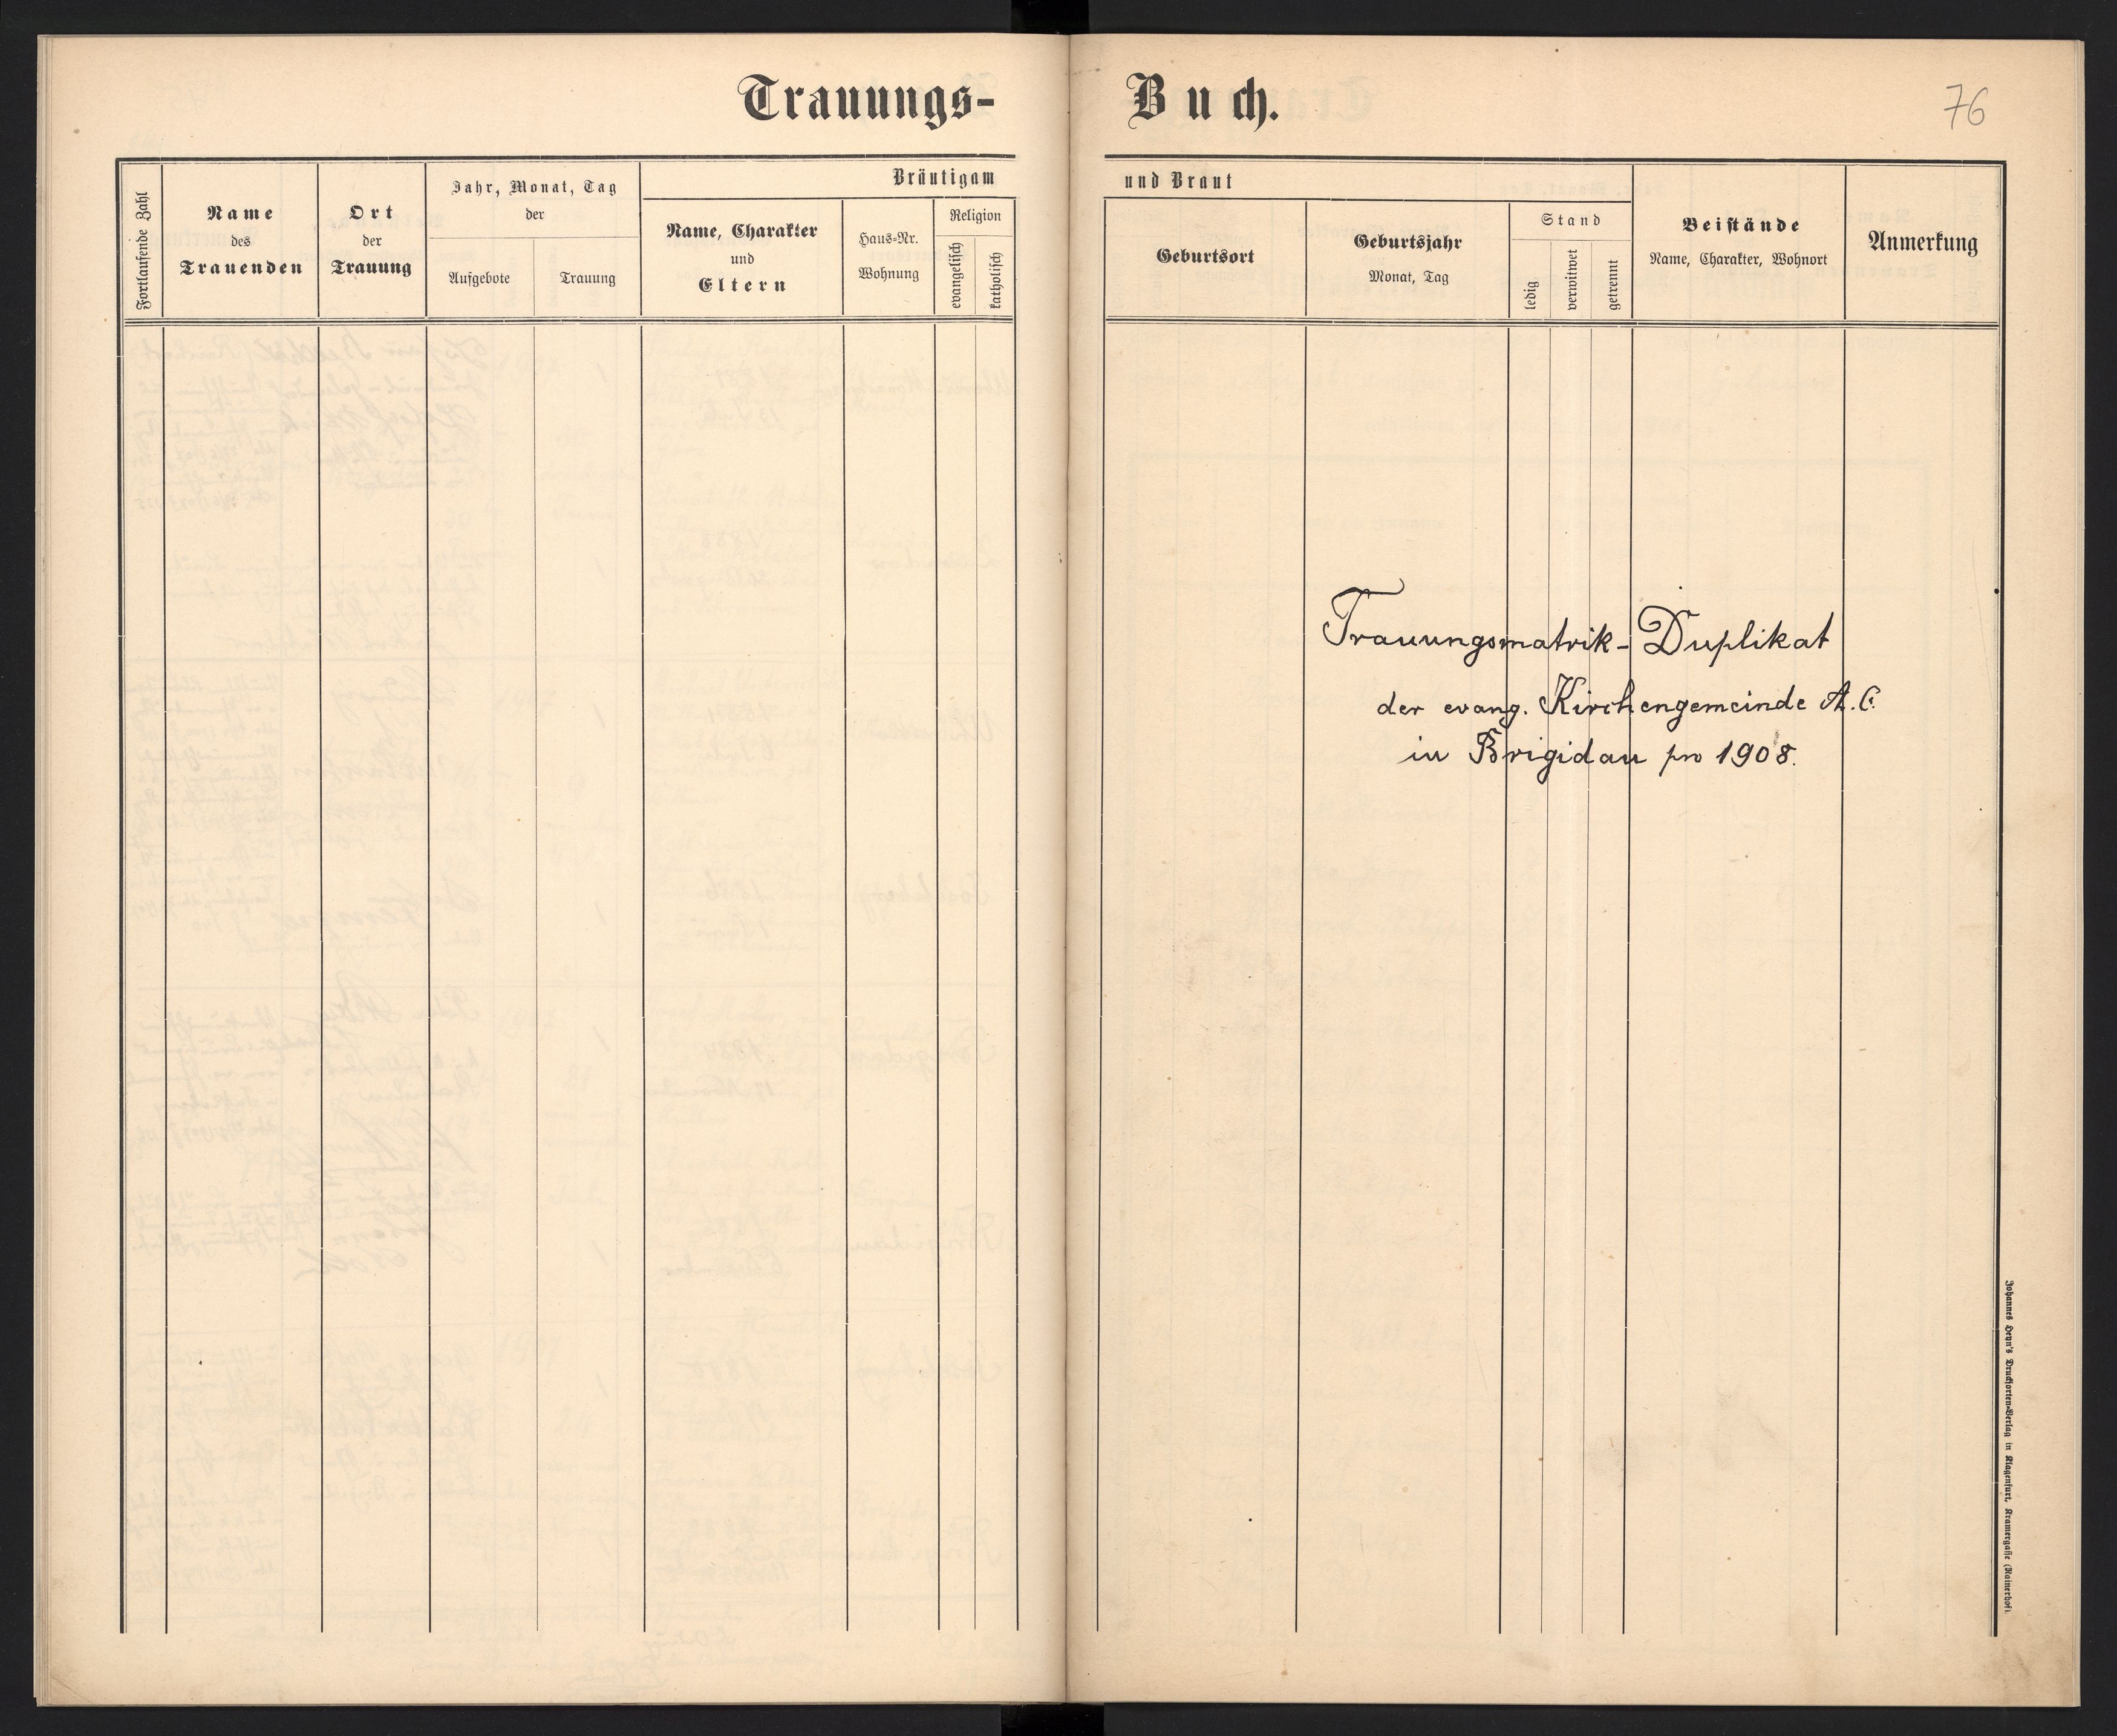 Trauungs-
Buch.
76
Fortlaufende Zahl
Name
des
Trauenden
Ort
der
Trauung
Jahr, Monat, Tag
der
Aufgebote
Trauung
Bräutigam
Name, Charakter
und
Eltern
Haus-Nr.
Wohnung
Religion
evangelisch
katholisch
und Braut
Geburtsort
Geburtsjahr
Monat, Tag
Stand
ledig
verwitwet
getrennt
Beistände
Name, Charakter, Wohnort
Anmerkung
Trauungsmatrik-Duplikat
der evang. Kirchengemeinde A.C.
in Brigidau pro 1908.
Johannes Heyn's Drucksorten-Verlag in Klagenfurt, Kramergasse (Rainerhof).